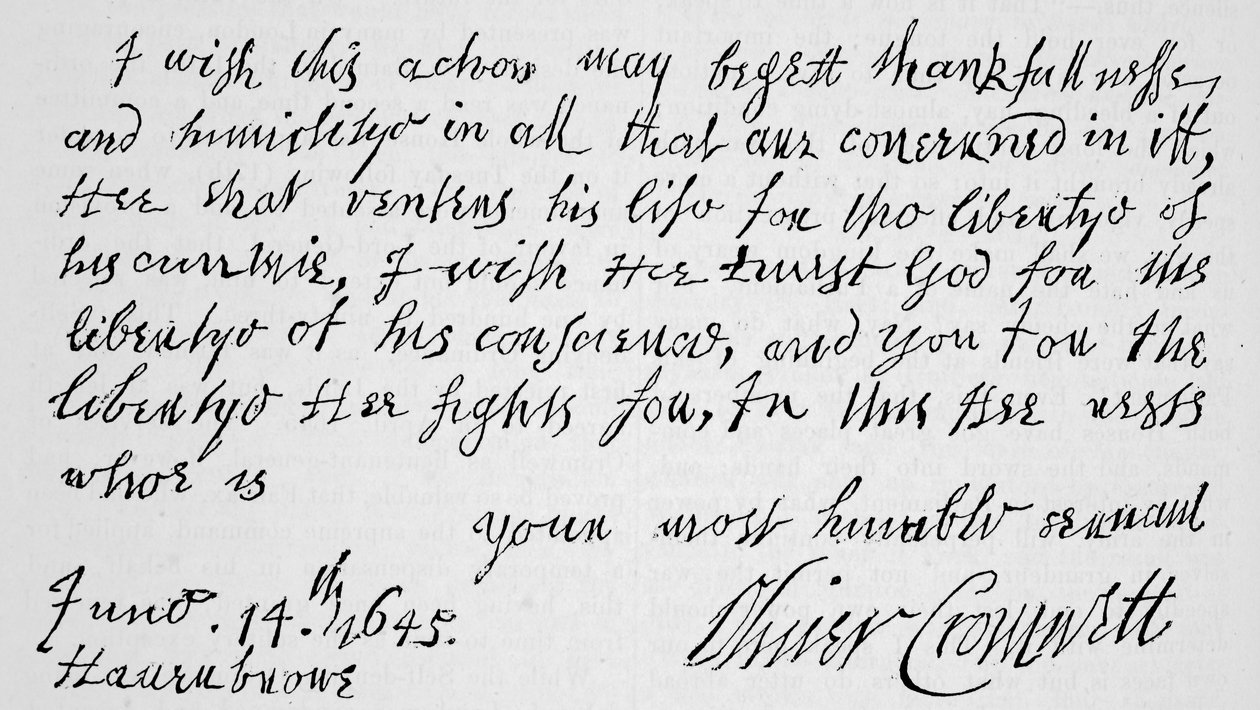 I wish this action may begett thankfullnesse,
and humilitye in all that are concerned in itt,
Hee that venters his life for the libertye of
his cuntrie, I wish Hee trust God for the
libertye of his conscience, and you for the
libertye Hee fights for, In this Hee rests
whoe is
your most humble servant
June. 14.th 1645.
Oliver Cromwell
Haverbrowe